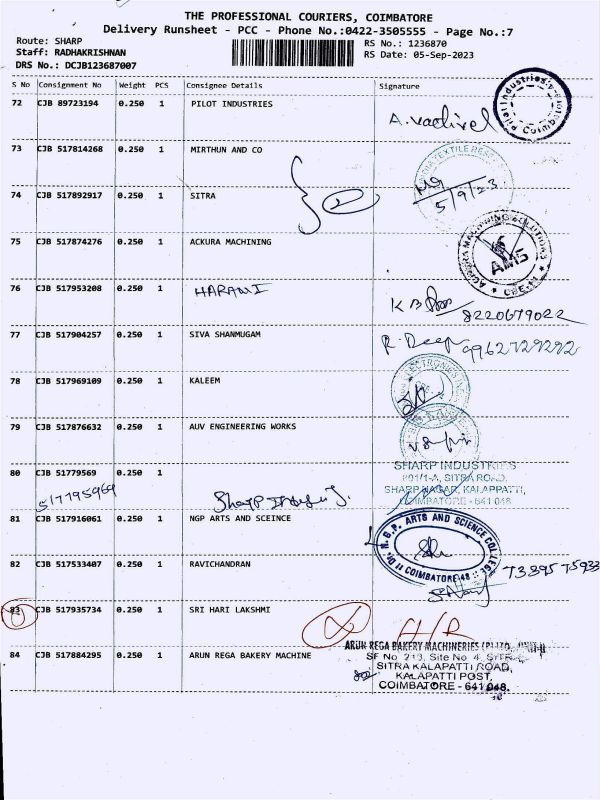 THE PROFESSIONAL COURIERS, COIMBATORE
Delivery Runsheet - PCC - Phone No.:0422-3505555 - Page No.:7
Route: SHARP
Staff: RADHAKRISHNAN
DRS No.: DCJB123687007
RS No.: 1236870
RS Date: 05-Sep-2023
S No Consignment No Weight PCS Consignee Details Signature
72 CJB 89723194 0.250 1 PILOT INDUSTRIES A. Vadivel
Pilot Industries Coimb
73 CJB 517814268 0.250 1 MIRTHUN AND CO
5/9/23
74 CJB 517892917 0.250 1 SITRA
75 CJB 517874276 0.250 1 ACKURA MACHINING
ACKURA MACHINING SOLUTIONS
AMS
CBE-14
76 CJB 517953208 0.250 1 HARANI K B
8220679022
77 CJB 517904257 0.250 1 SIVA SHANMUGAM R. Deep 9962729292
78 CJB 517969109 0.250 1 KALEEM
ELECTRONICS
79 CJB 517876632 0.250 1 AUV ENGINEERING WORKS
80 CJB 51779569 0.250 1
517795969
SHARP INDUSTRIES
801/1-A, SITRA ROAD,
SHARP NAGAR, KALAPATTI,
COIMBATORE - 641 048
81 CJB 517916061 0.250 1 NGP ARTS AND SCEINCE
Dr. N.G.P. ARTS AND SCIENCE COLLEGE
COIMBATORE-48
82 CJB 517533407 0.250 1 RAVICHANDRAN 73895 75933
83 CJB 517935734 0.250 1 SRI HARI LAKSHMI
84 CJB 517884295 0.250 1 ARUN REGA BAKERY MACHINE
ARUN REGA BAKERY MACHINERIES (P) LTD., UNIT-II
SF No. 213, Site No. 4, SITRA
SITRA KALAPATTI ROAD,
KALAPATTI POST,
COIMBATORE - 641 048.